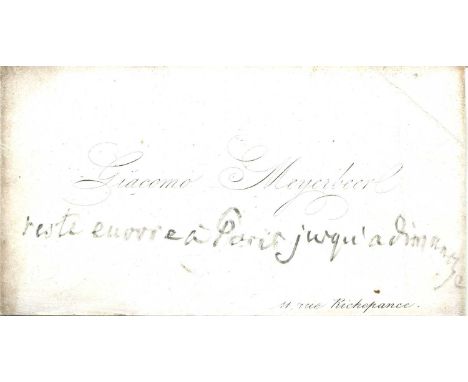 Giacomo Meyerbeer
reste encore à Paris jusqu'a dimanche
11 rue Richepance.